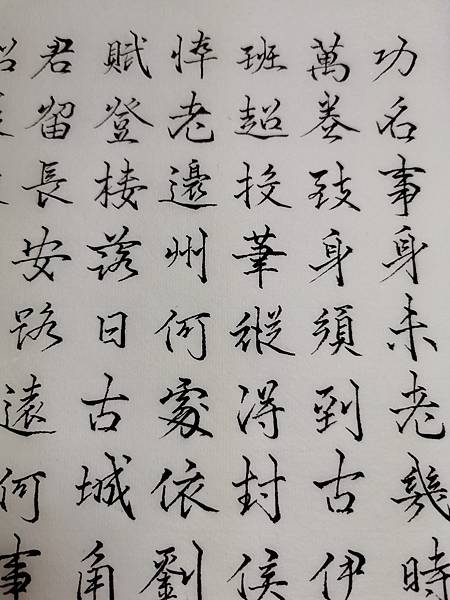 功名事身未老幾時
萬卷致身須到古伊
班超投筆縱得封侯
悴老邊州何處依劉
賦登楼落日古城角
君留長安路遠何事